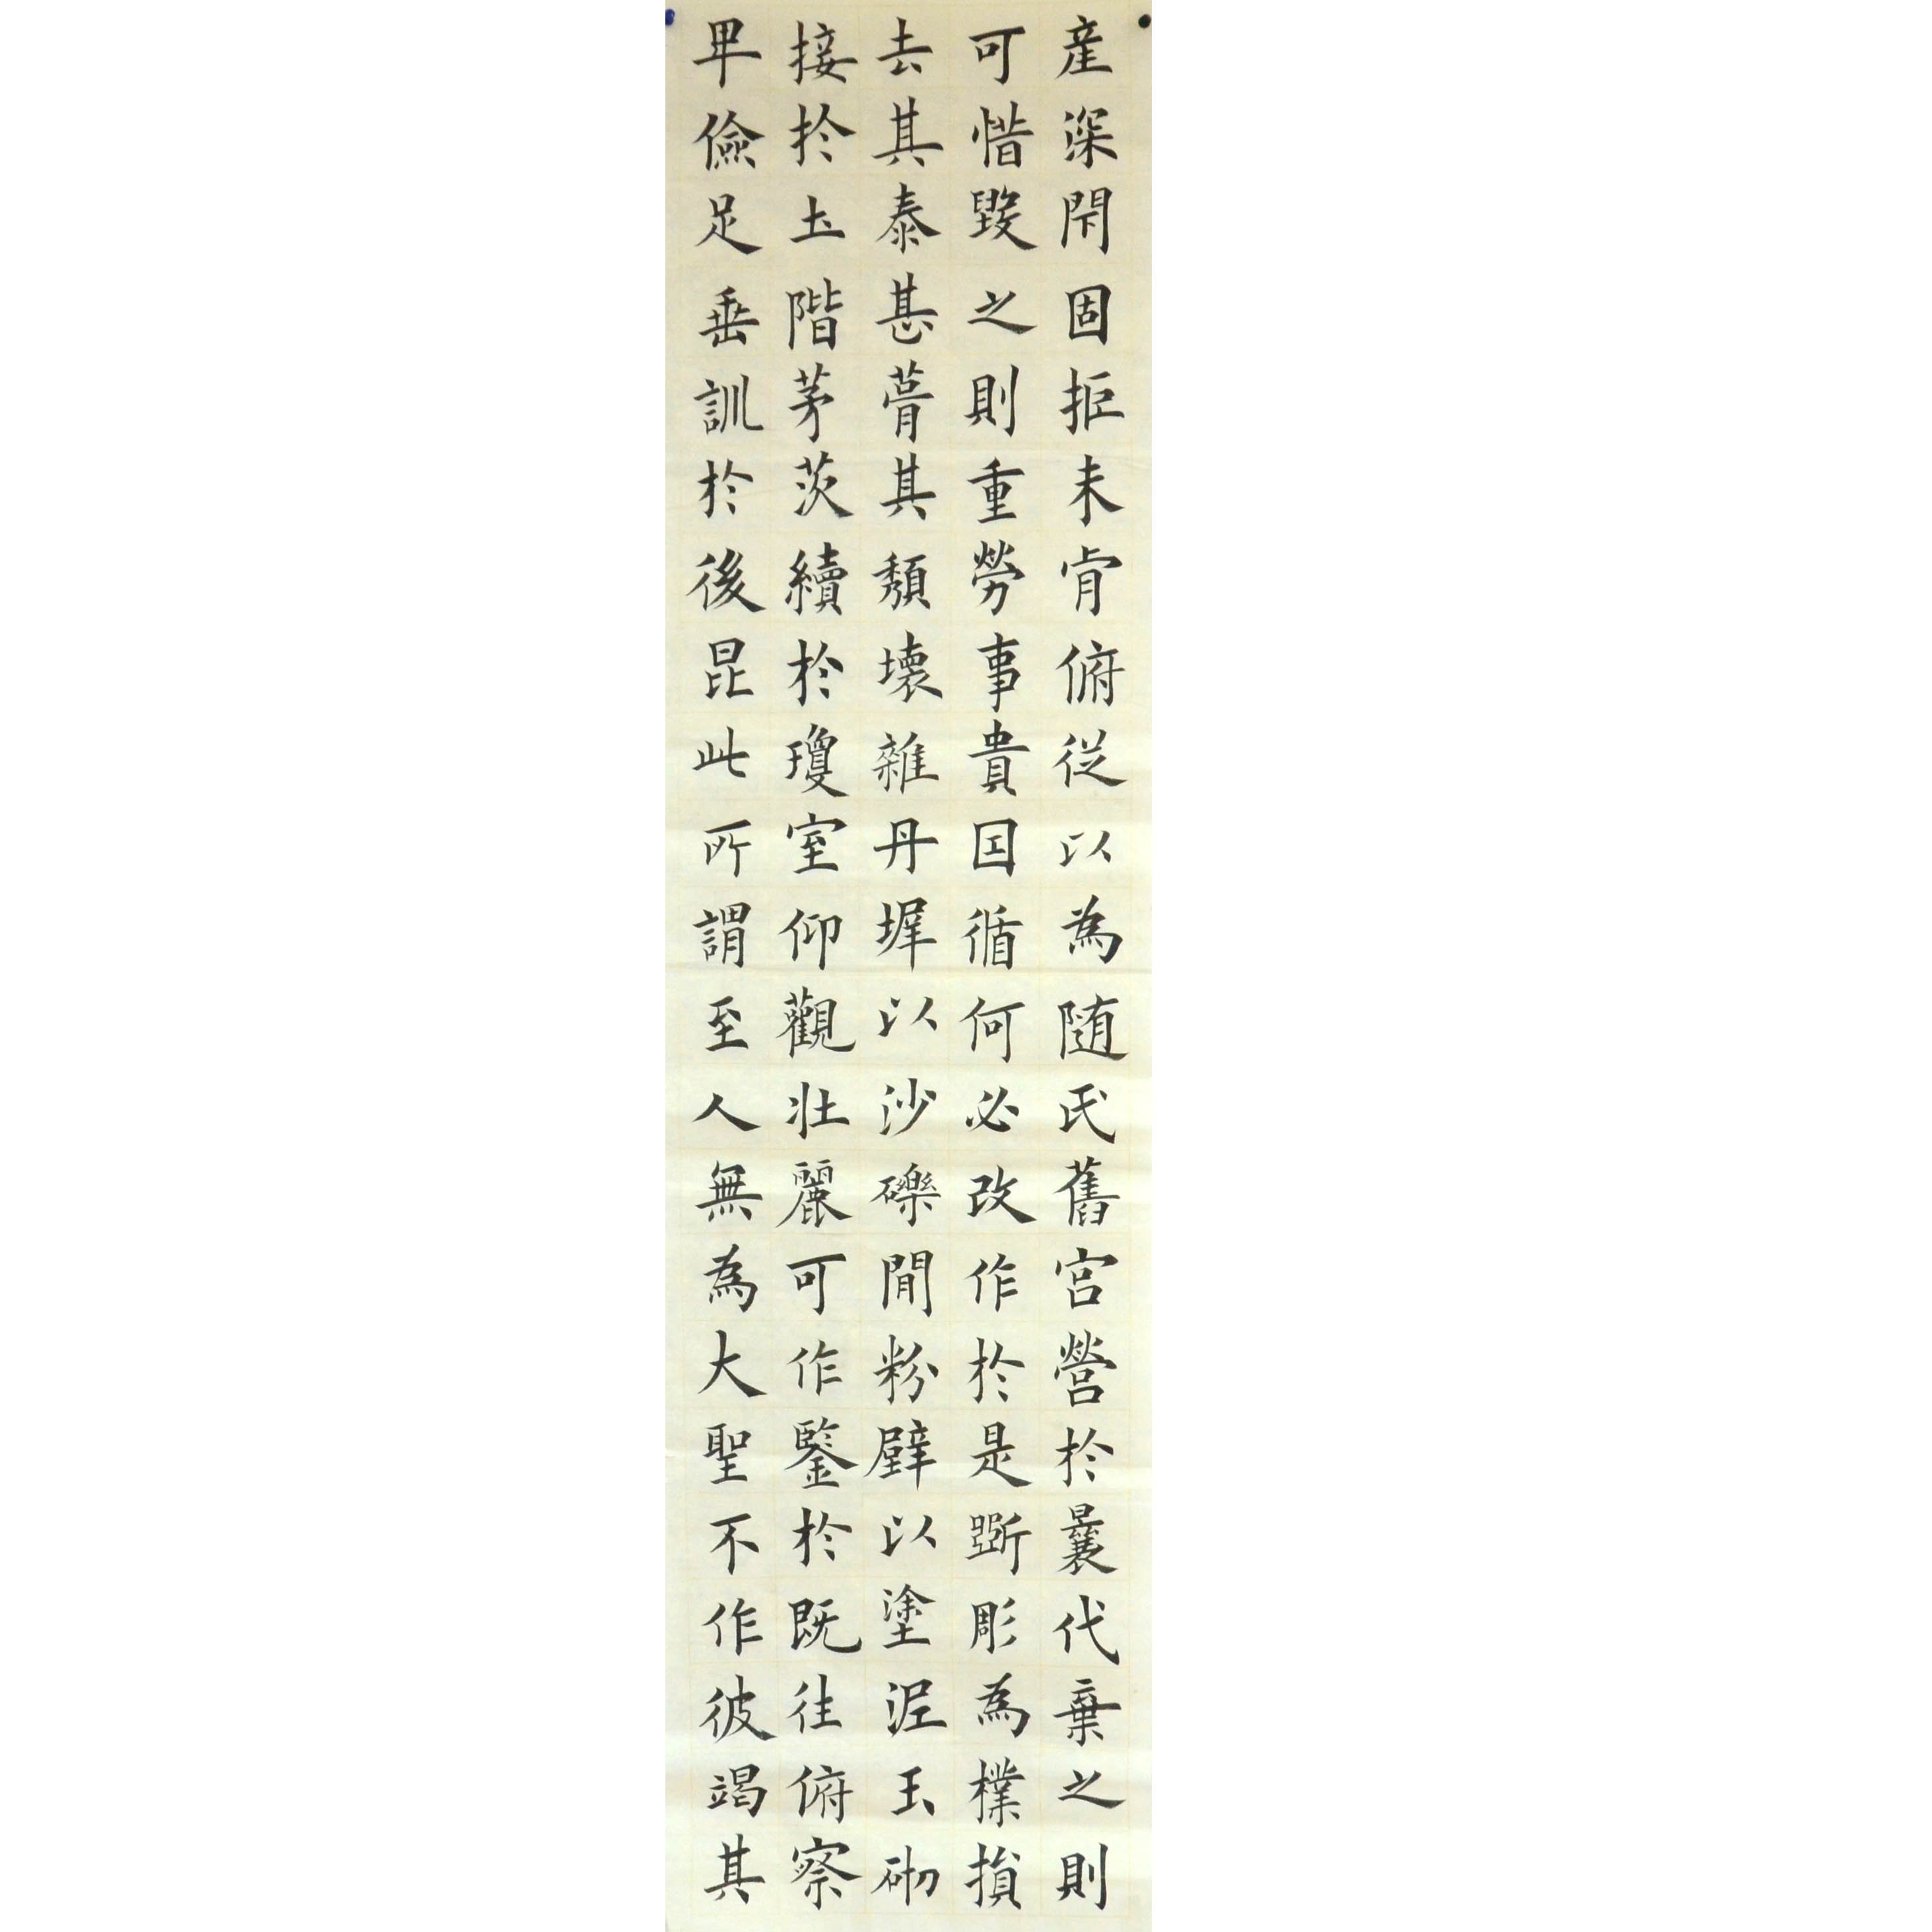 産深閇固拒未肯俯從以為隨氏舊宮營於曩代棄之則
可惜毀之則重勞事貴因循何必改作於是斲彫為樸損
去其泰甚葺其頹壞雜丹墀以沙礫間粉壁以塗泥玉砌
接於土階茅茨續於瓊室仰觀壯麗可作鑒於既往俯察
卑儉足垂訓於後昆此所謂至人無為大聖不作彼竭其